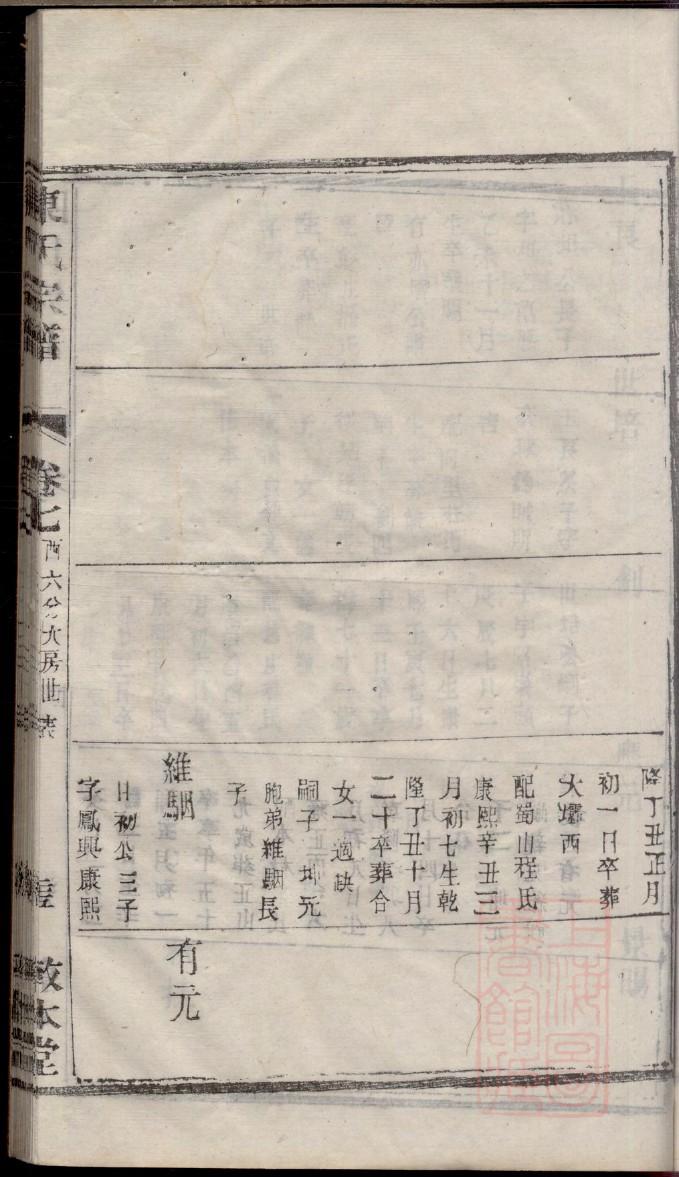 隆丁丑正月
初一日卒葬
大壩西
配蜀山程氏
康熙辛丑三
月初七生乾
隆丁丑十月
二十卒葬合
女一適缺
嗣子 坤元
胞弟維駰長
子
維駰
日初公三子
字鳳興康熙
有元
陳氏宗譜
卷七
西六分大房世表
敦本堂